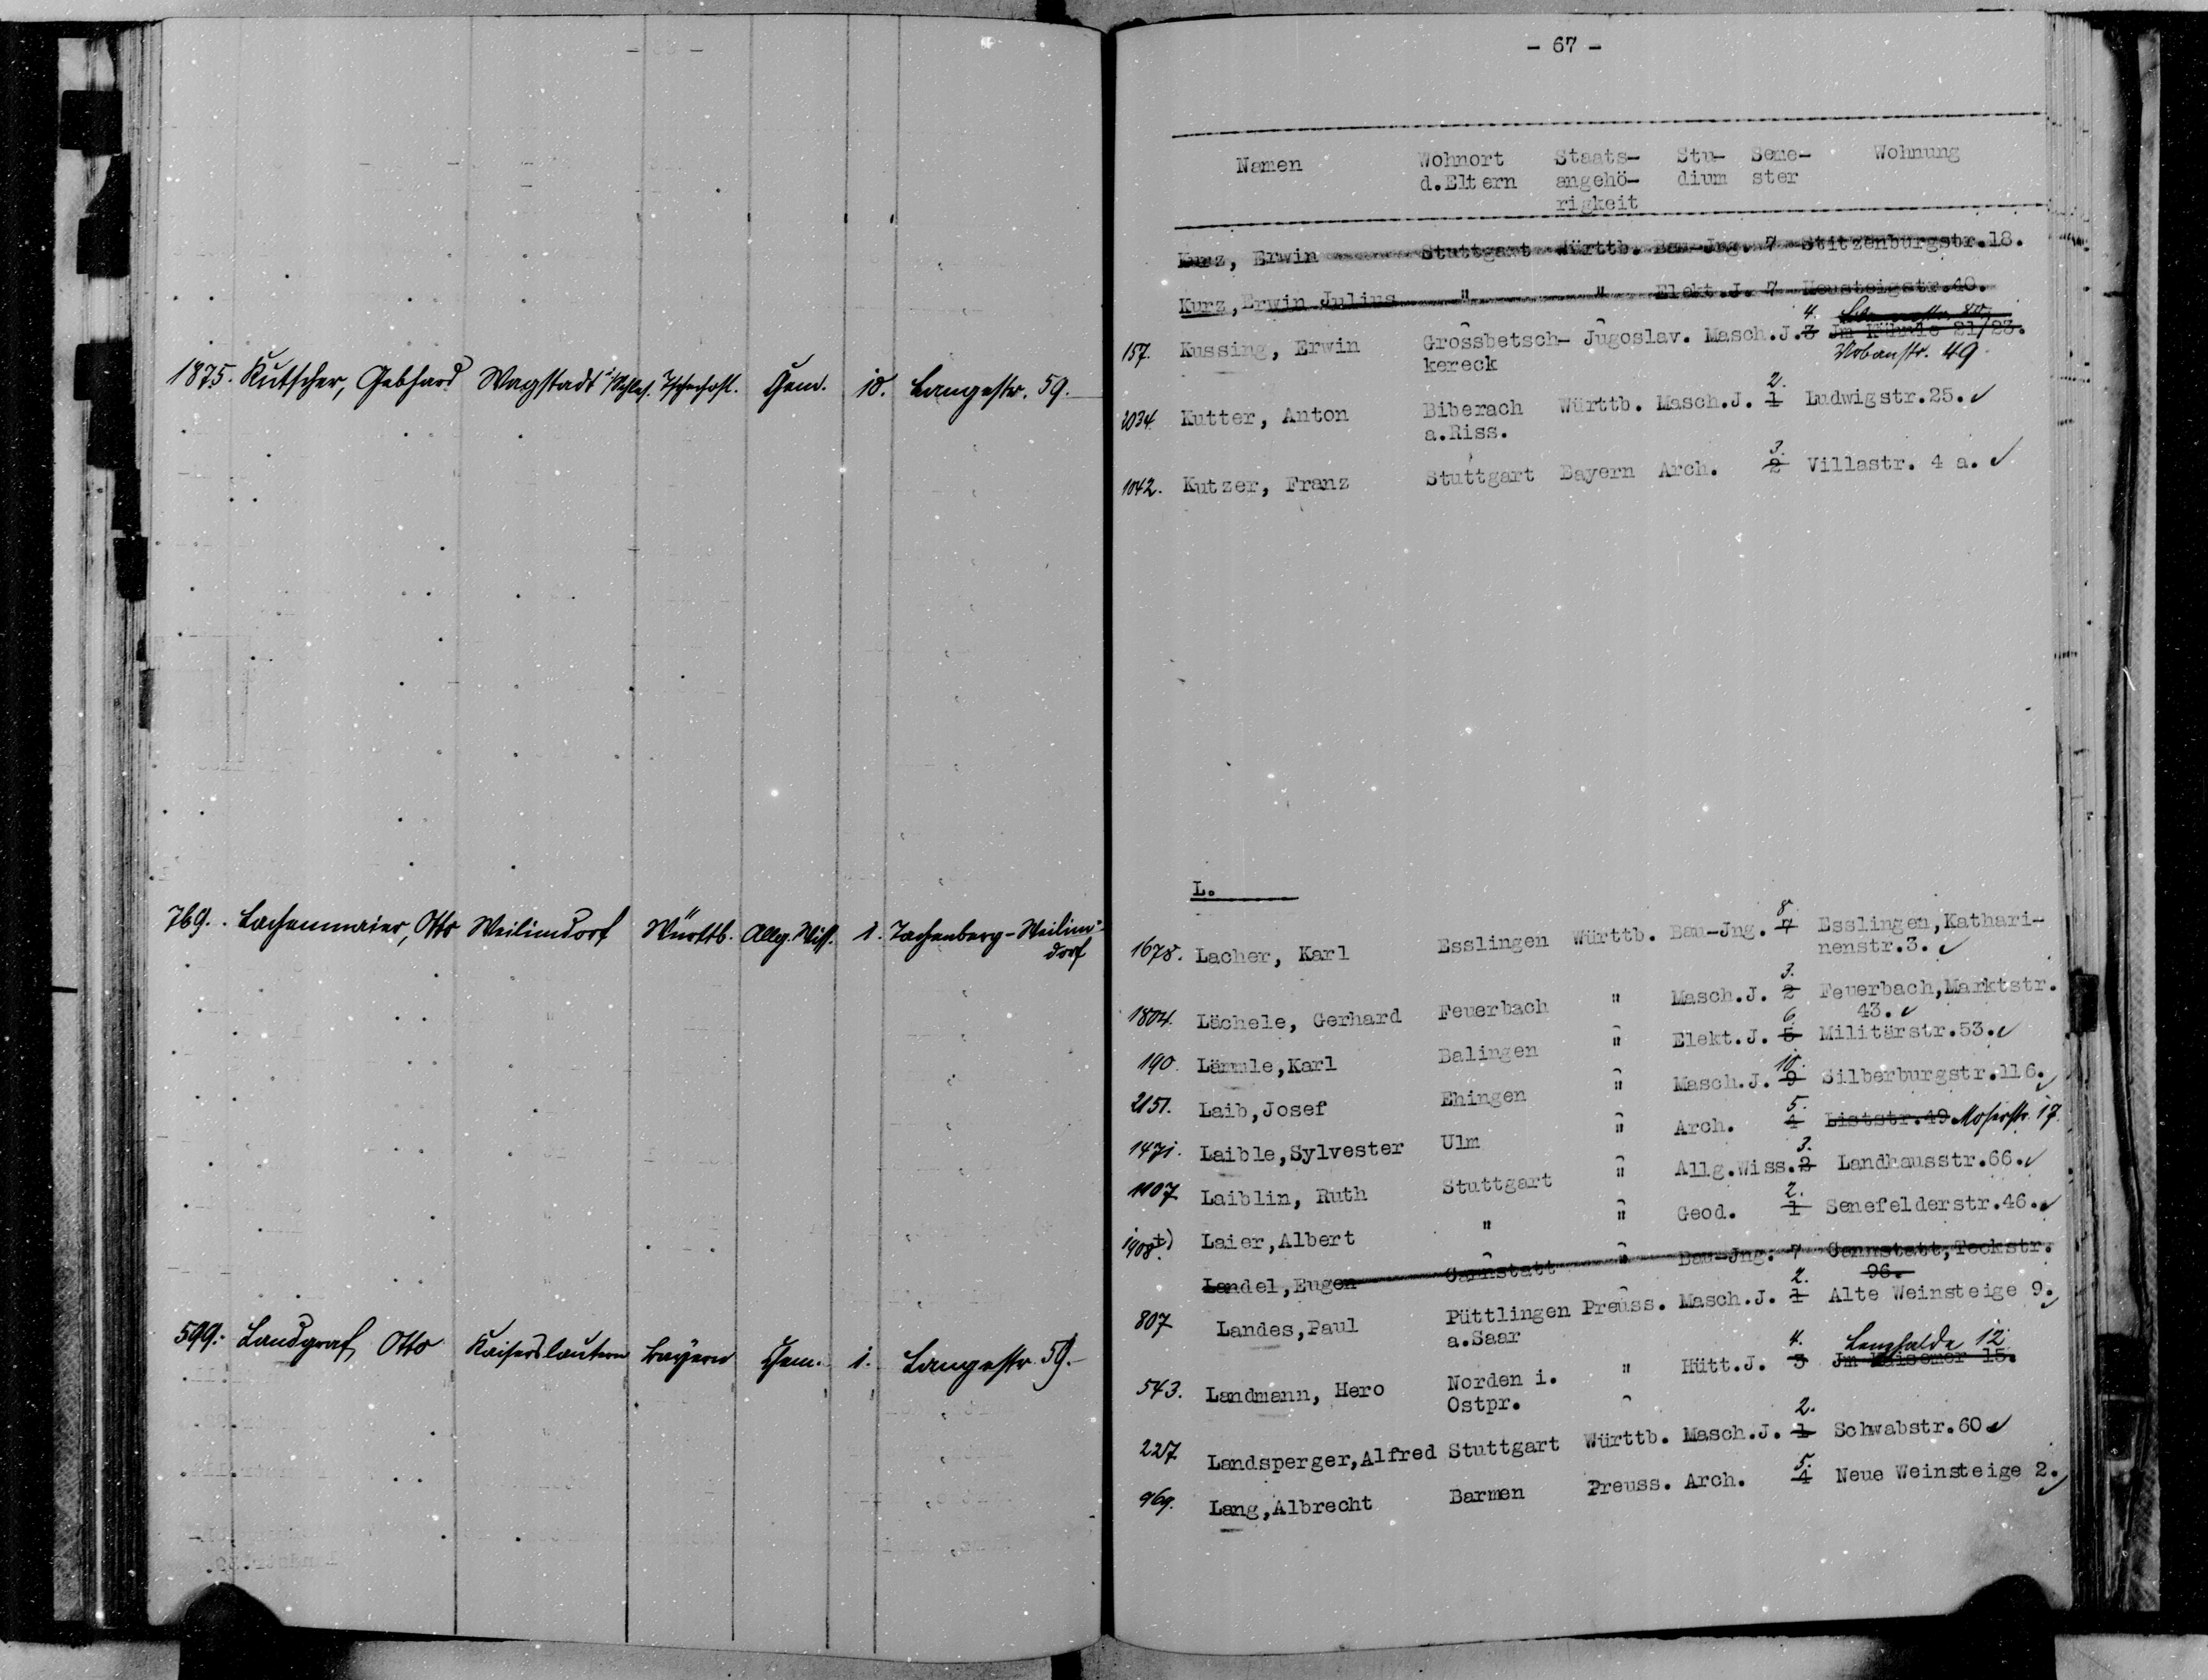 1875. Kutscher, Gebhard Wagstadt i/Schles. Tschechosl. Chem. 10. Langestr. 59.
769. Lachenmaier, Otto Weilimdorf Württb. Allg. Wiss. 1. Tachenberg-Weilim-
dorf
599. Landgraf Otto Kaiserslautern Bayern Chem. 1. Langestr. 59.
- 67 -
Namen Wohnort Staats- Stu- Seme- Wohnung
d.Eltern angehö- dium ster
rigkeit
Kurz, Erwin Stuttgart Württb. Bau-Jng. 7 Stitzenburgstr.18.
Kurz,Erwin Julius " " Elekt.J. 7 Neusteigstr.40.
4.
157. Kussing, Erwin Grossbetsch- Jugoslav. Masch.J. 3 Jm Kühnle 21/23.
kereck Urbanstr. 49
2.
2034. Kutter, Anton Biberach Württb. Masch.J. 1 Ludwigstr.25.
a.Riss.
3.
1042. Kutzer, Franz Stuttgart Bayern Arch. 2 Villastr. 4 a.
L.
8.
1678. Lacher, Karl Esslingen Württb. Bau-Jng. 7 Esslingen,Kathari-
nenstr.3.
3.
1804. Lächele, Gerhard Feuerbach " Masch.J. 2 Feuerbach,Marktstr.
43.
6.
190. Lämmle,Karl Balingen " Elekt.J. 5 Militärstr.53.
10.
2151. Laib,Josef Ehingen " Masch.J. 9 Silberburgstr.116.
5.
1471. Laible,Sylvester Ulm " Arch. 4 Liststr.49 Moserstr. 17.
3.
1107 Laiblin, Ruth Stuttgart " Allg.Wiss. 2 Landhausstr.66.
2.
1908. +) Laier,Albert " " Geod. 1 Senefelderstr.46.
Landel,Eugen Cannstatt " Bau-Jng. 7 Cannstatt,Teckstr.
96.
2.
807 Landes,Paul Püttlingen Preuss. Masch.J. 1 Alte Weinsteige 9.
a.Saar
4. Lenzhalde 12
543. Landmann, Hero Norden i. " Hütt.J. 3 Jm Kaisemer 15.
Ostpr.
2.
227 Landsperger,Alfred Stuttgart Württb. Masch.J. 1 Schwabstr.60
5.
969. Lang,Albrecht Barmen Preuss. Arch. 4 Neue Weinsteige 2.